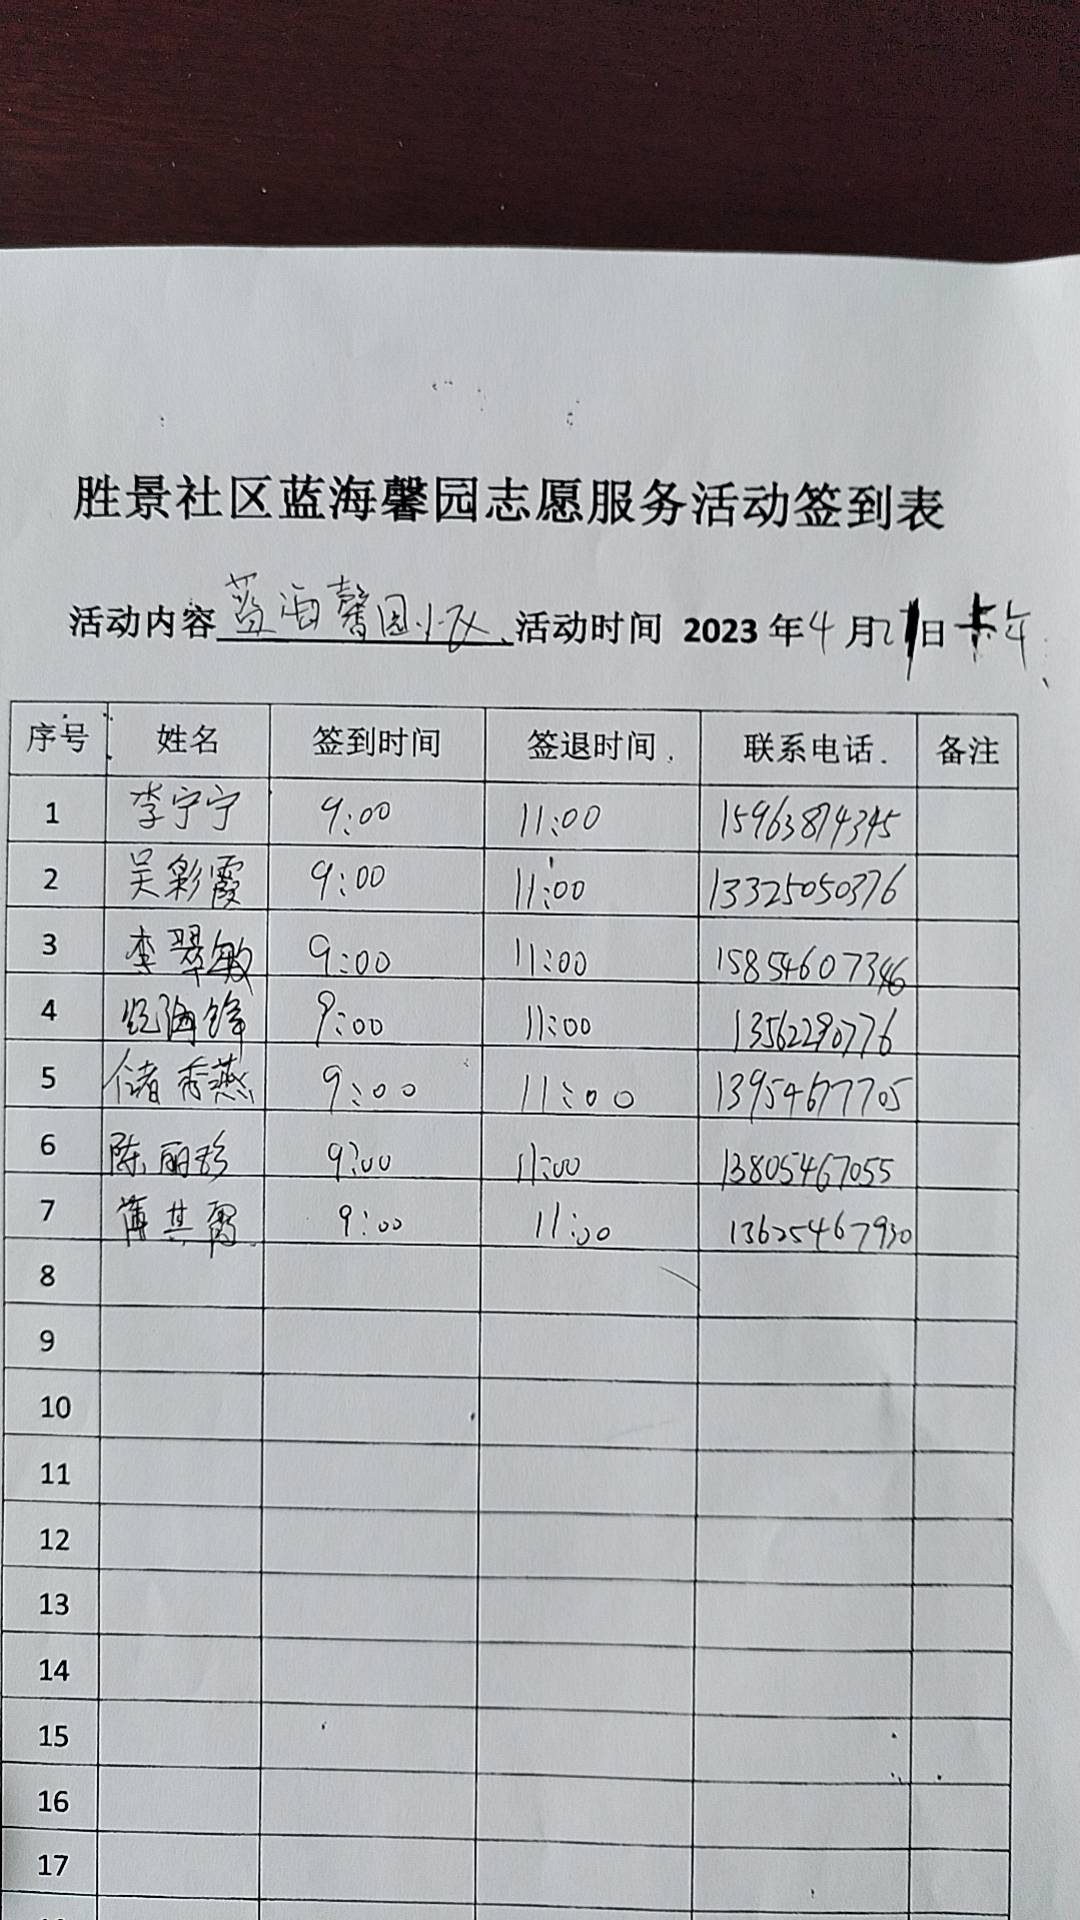 胜景社区蓝海馨园志愿服务活动签到表
活动内容 蓝海馨园小区 活动时间 2023 年 4 月 21 日 上午
序号 姓名 签到时间 签退时间 联系电话 备注
1 李宁宁 9:00 11:00 15963874345
2 吴彩霞 9:00 11:00 13325050376
3 李翠敏 9:00 11:00 15854607346
4 海锋 9:00 11:00
5 储秀燕 9:00 11:00 13954677705
6 陈丽珍 9:00 11:00 13805467055
7 薄其 9:00 11:00 13625467930
8
9
10
11
12
13
14
15
16
17